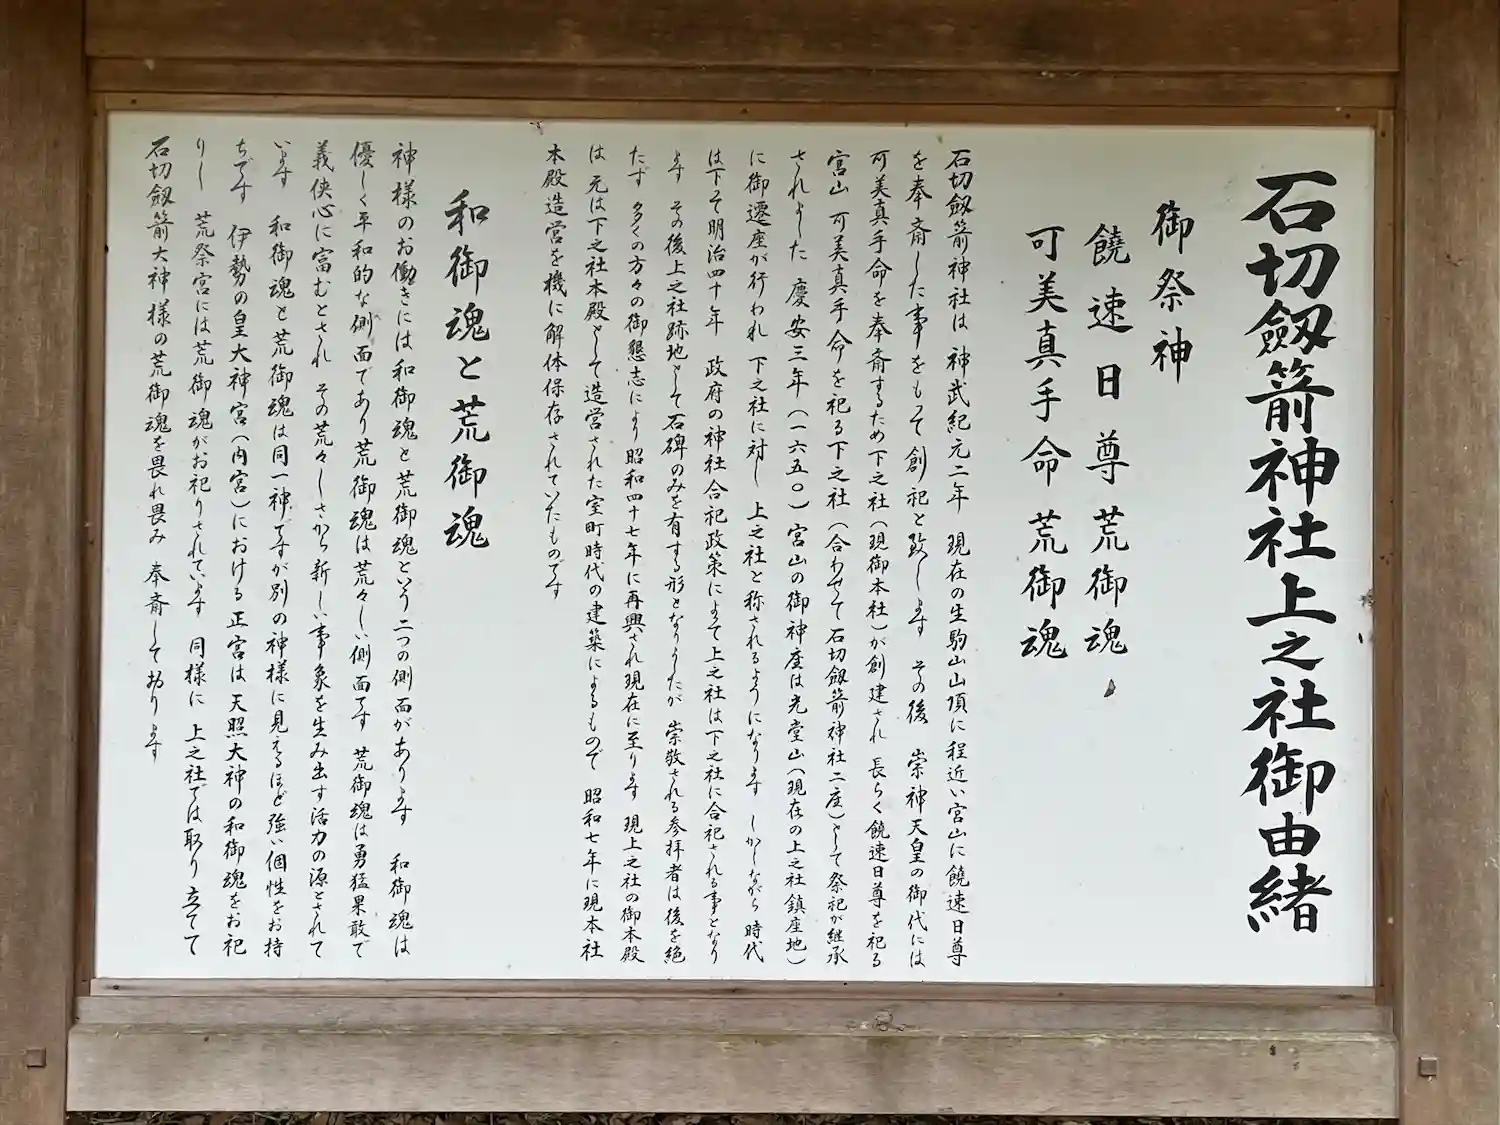 石切劔箭神社上之社御由緒
御祭神
饒速日尊 荒御魂
可美真手命 荒御魂
石切劔箭神社は 神武紀元二年 現在の生駒山山頂に程近い宮山に饒速日尊
を奉斎した事をもって創祀と致します その後 崇神天皇の御代には
可美真手命を奉斎するため下之社(現御本社)が創建され 長らく饒速日尊を祀る
宮山 可美真手命を祀る下之社(合わせて石切劔箭神社二座)として祭祀が継承
されました 慶安三年(一六五〇)宮山の御神座は光堂山(現在の上之社鎮座地)
に御遷座が行われ 下之社に対し 上之社と称されるようになります しかしながら 時代
は下って明治四十年 政府の神社合祀政策によって上之社は下之社に合祀される事となり
ます その後上之社跡地として石碑のみを有する形となりましたが 崇敬される参拝者は後を絶
たず 多くの方々の御懇志により 昭和四十七年に再興され現在に至ります 現上之社の御本殿
は 元は下之社本殿として造営された室町時代の建築によるもので 昭和七年に現本社
本殿造営を機に解体保存されていたものです
和御魂と荒御魂
神様のお働きには和御魂と荒御魂という二つの側面があります 和御魂は
優しく平和的な側面であり荒御魂は荒々しい側面です 荒御魂は勇猛果敢で
義侠心に富むとされ その荒々しさから新しい事象を生み出す活力の源とされて
います 和御魂と荒御魂は同一神ですが別の神様に見えるほど強い個性をお持
ちです 伊勢の皇大神宮(内宮)における正宮は天照大神の和御魂をお祀
りし 荒祭宮には荒御魂がお祀りされています 同様に 上之社では取り立てて
石切劔箭大神様の荒御魂を畏れ畏み 奉斎しております